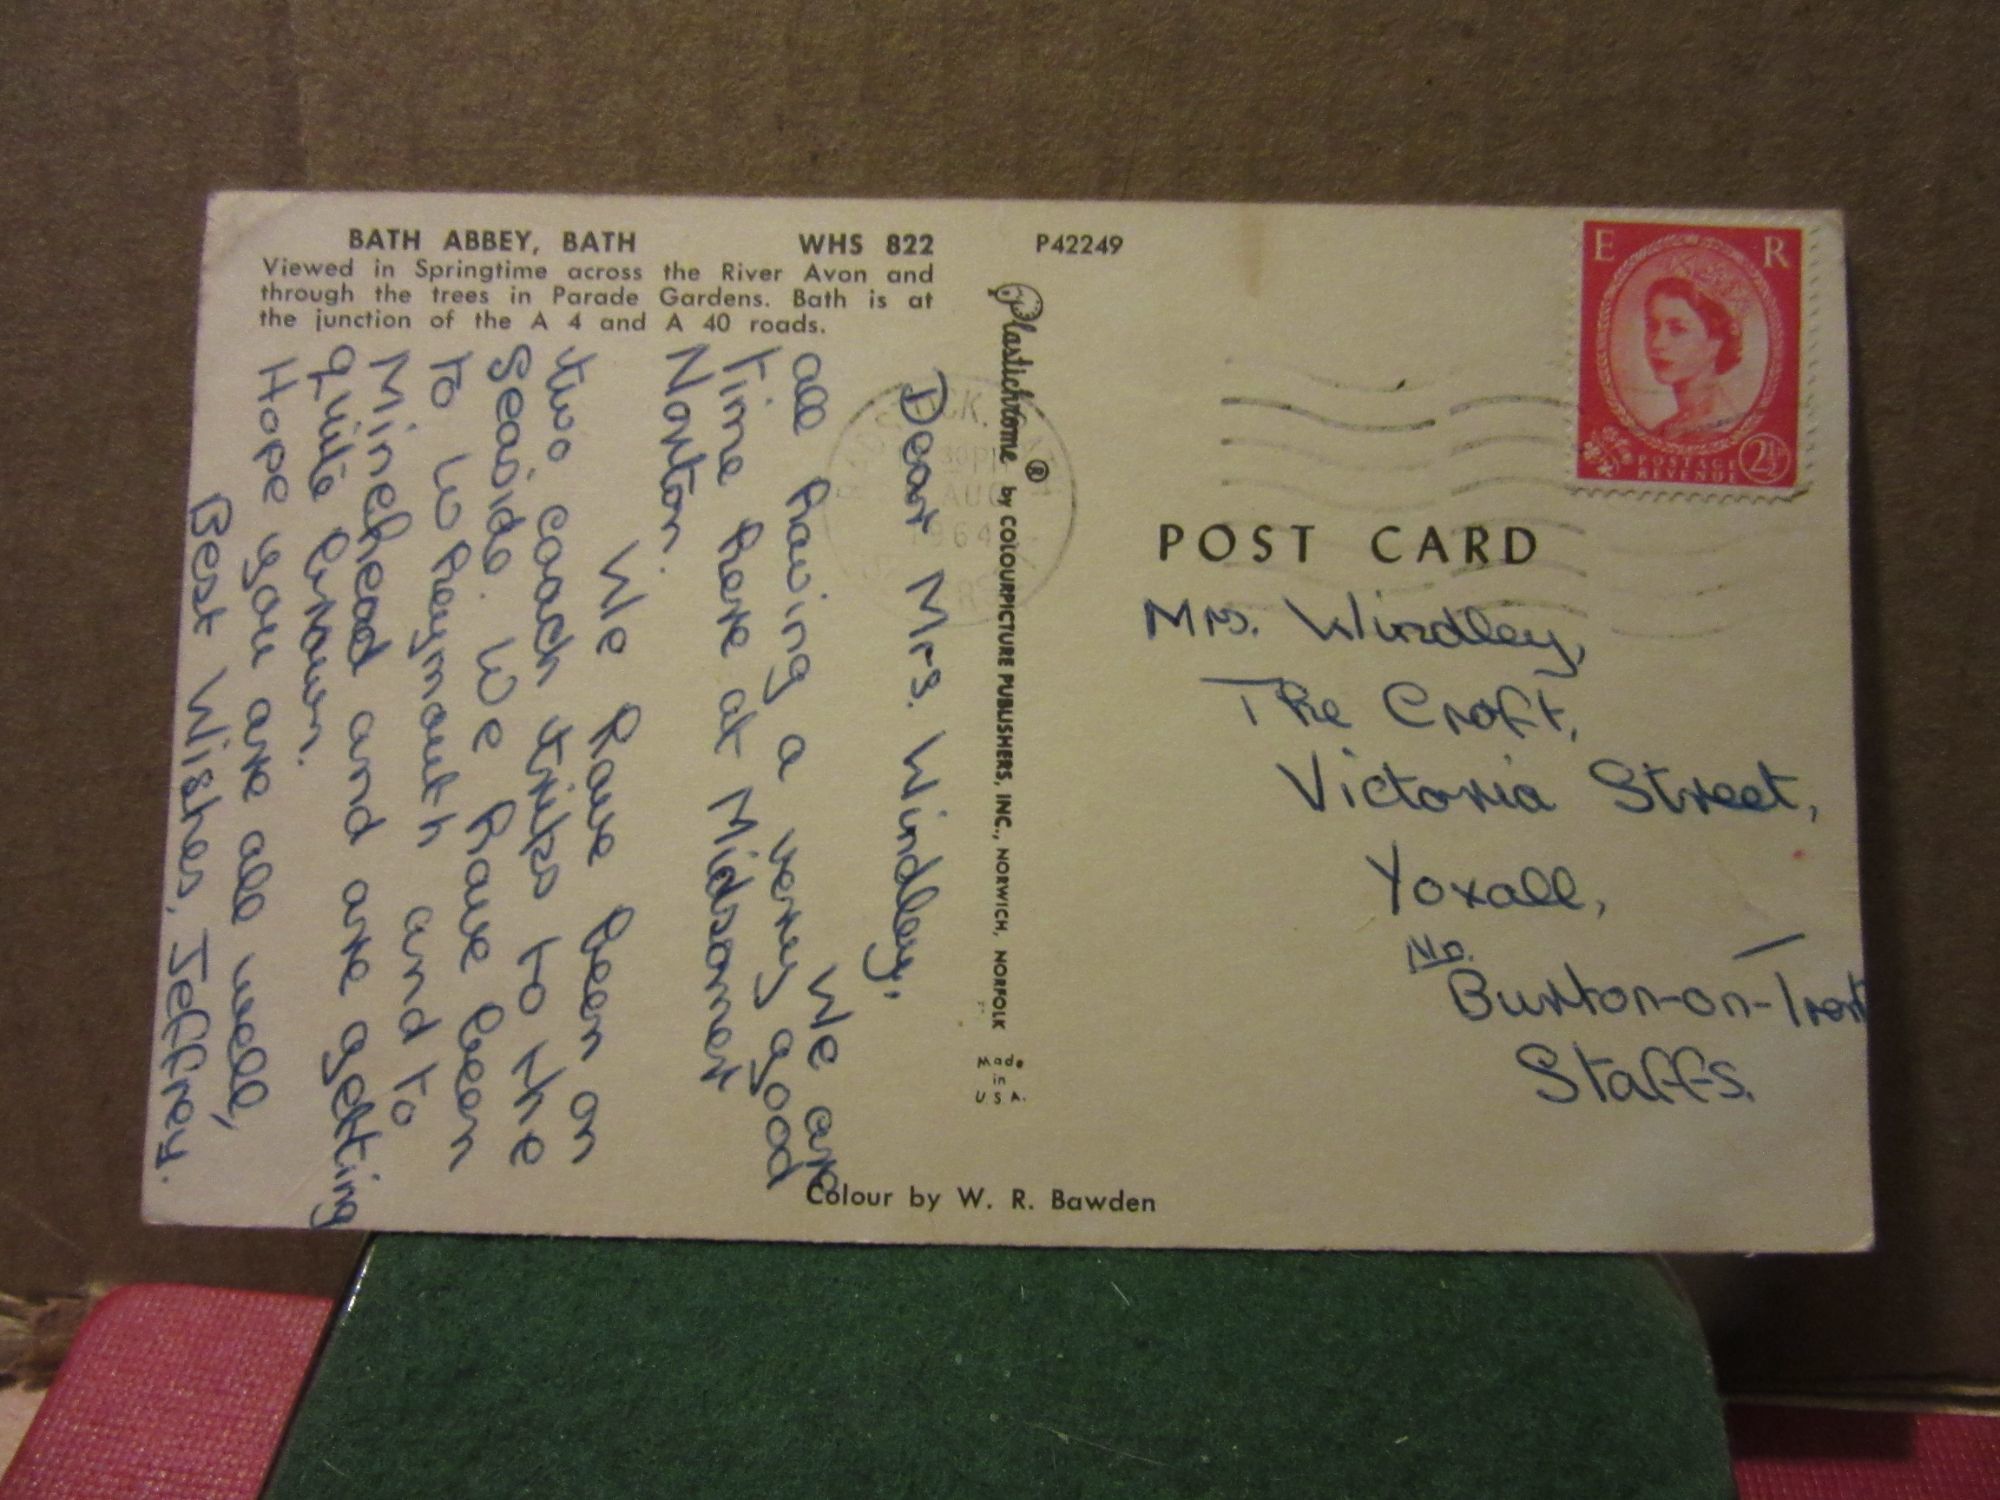 BATH ABBEY, BATH WHS 822
Viewed in Springtime across the River Avon and
through the trees in Parade Gardens. Bath is at
the junction of the A 4 and A 40 roads.
P42249
Dear Mrs. Windley,
We are
all having a very good
Time here at Midsomer
Norton.
We have been on
two coach trips to the
Seaside. We have been
to Wheymouth and to
Minehead and are getting
quite brown.
Hope you are all well,
Best Wishes, Jeffrey.
Plastichrome ® by COLOURPICTURE PUBLISHERS, INC., NORWICH, NORFOLK
Made
in
U.S.A.
Colour by W. R. Bawden
30PM
AUG
1964
E R
POSTAGE
REVENUE
2½D
POST CARD
Mrs. Windley,
The Croft,
Victoria Street,
Yoxall,
Nr.
Burton-on-Trent
Staffs.